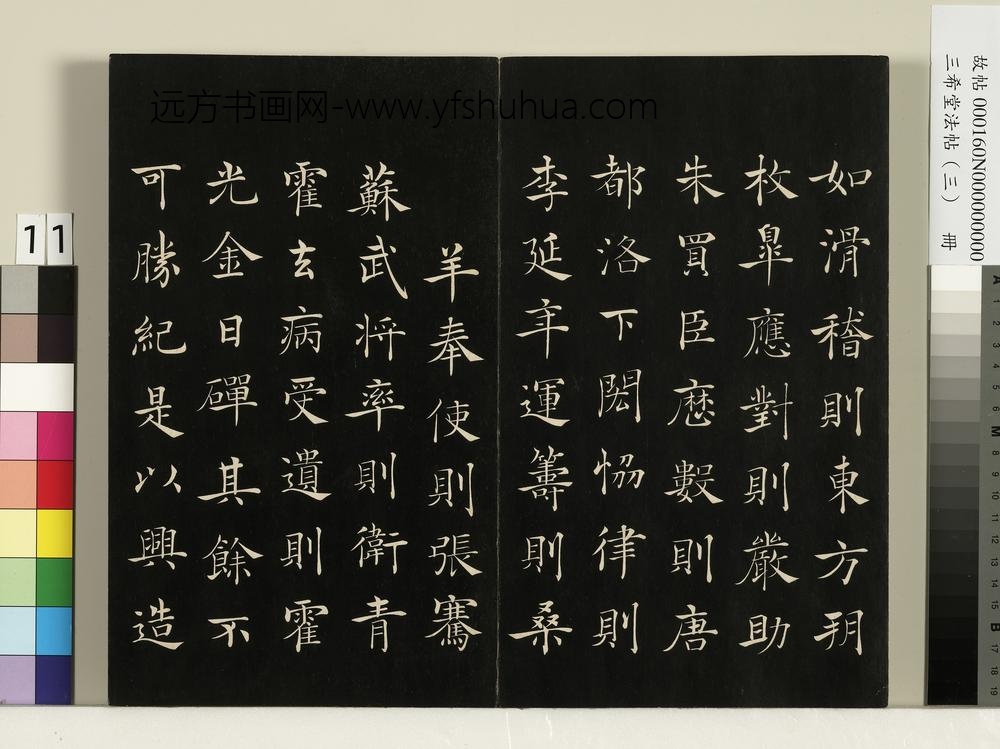 远方书画网-www.yfshuhua.com
如滑稽則東方朔
枚皐應對則嚴助
朱買臣厯數則唐
都洛下閎恊律則
李延年運籌則桑
羊奉使則張騫
蘇武将率則衛青
霍去病受遺則霍
光金日磾其餘不
可勝紀是以興造
故帖 000160N000000000
三希堂法帖（三） 冊
11